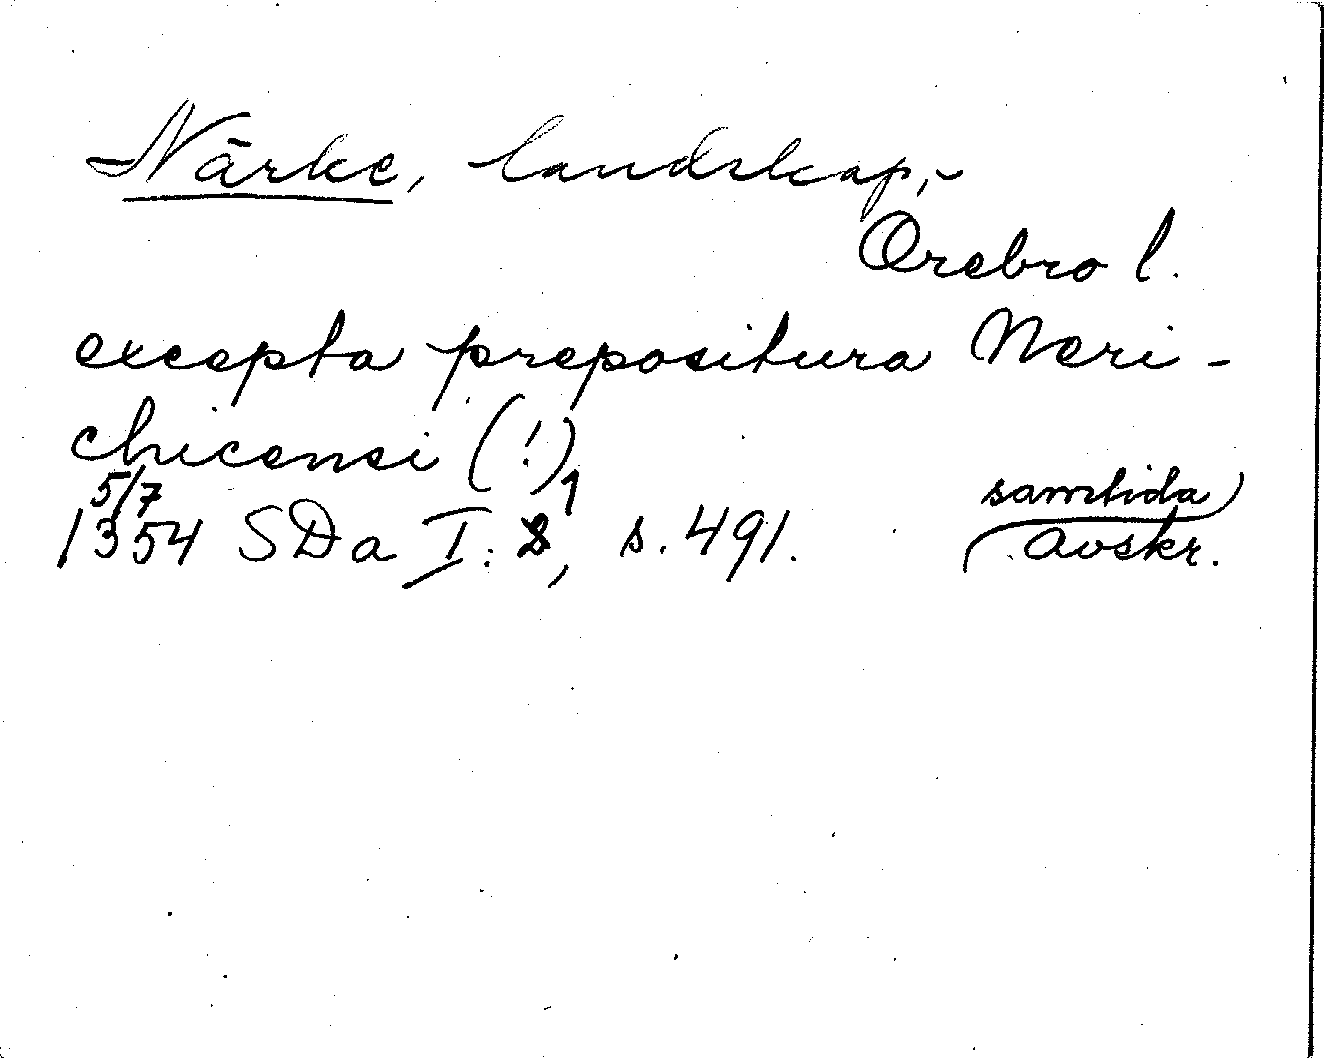 Närke, landskap,
Örebro l.
excepta prepositura Neri-
chicensi (!)
5/7
1354 SDa I:1, s. 491. samtida
avskr.